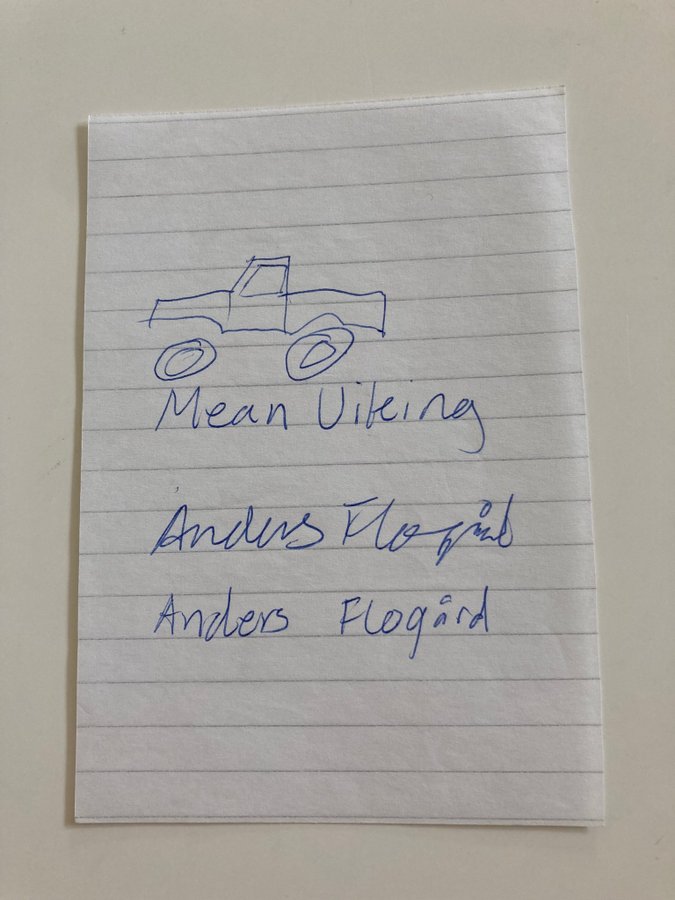 Mean Viking
Anders Flogård
Anders Flogård